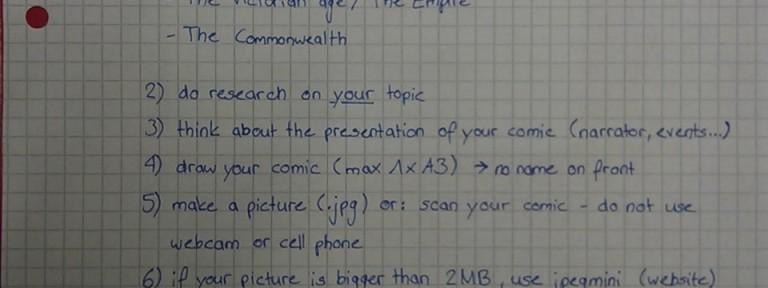 The Victorian age / The Empire
- The Commonwealth
2) do research on your topic
3) think about the presentation of your comic (narrator, events...)
4) draw your comic (max 1x A3) → no name on front
5) make a picture (.jpg) or: scan your comic - do not use
webcam or cell phone
6) if your picture is bigger than 2MB, use jpegmini (website)